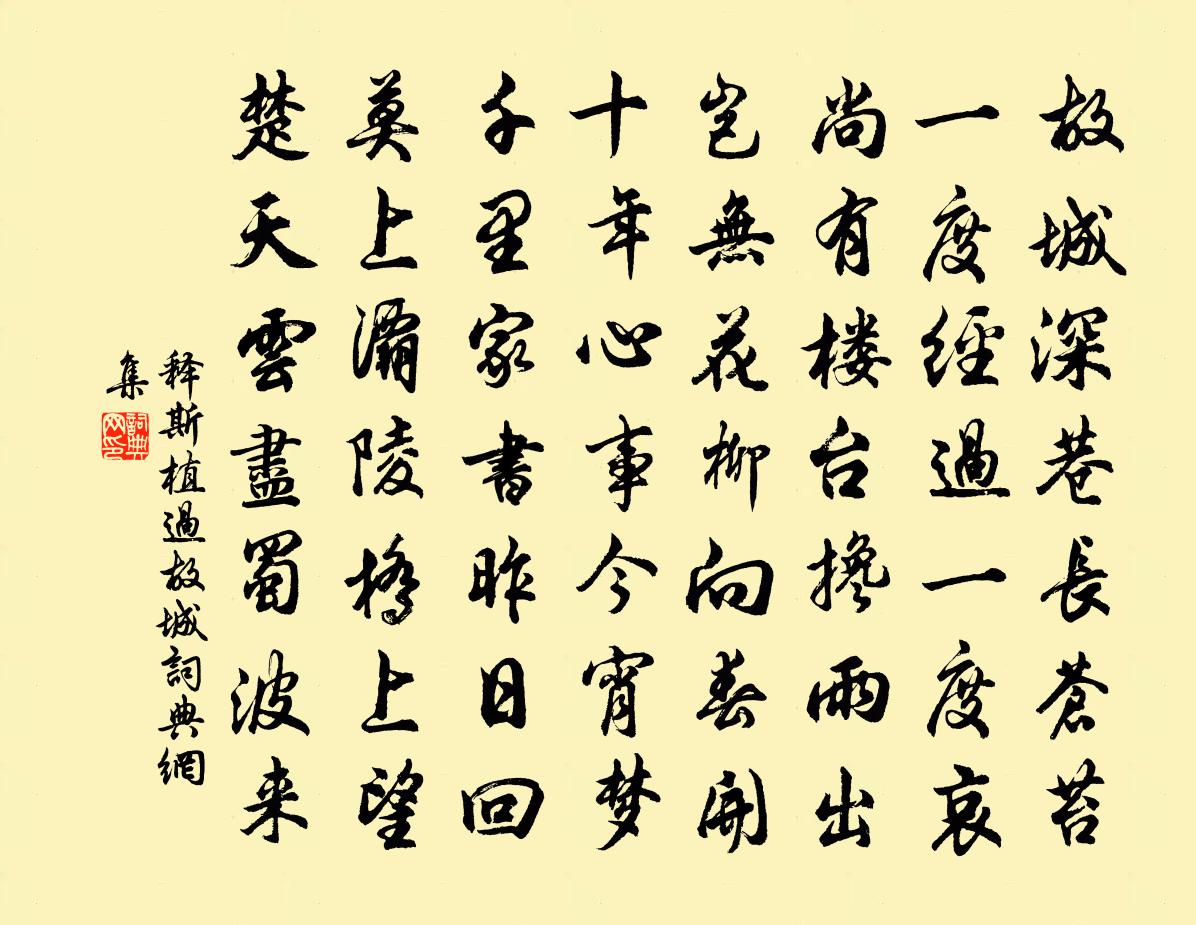 故城深巷長蒼苔
一度經過一度哀
尚有楼台攙雨出
岂無花柳向春開
十年心事今宵梦
千里家書昨日回
莫上灞陵橋上望
楚天雲盡蜀波来
释斯植過故城詞典網
集
詞典
网印